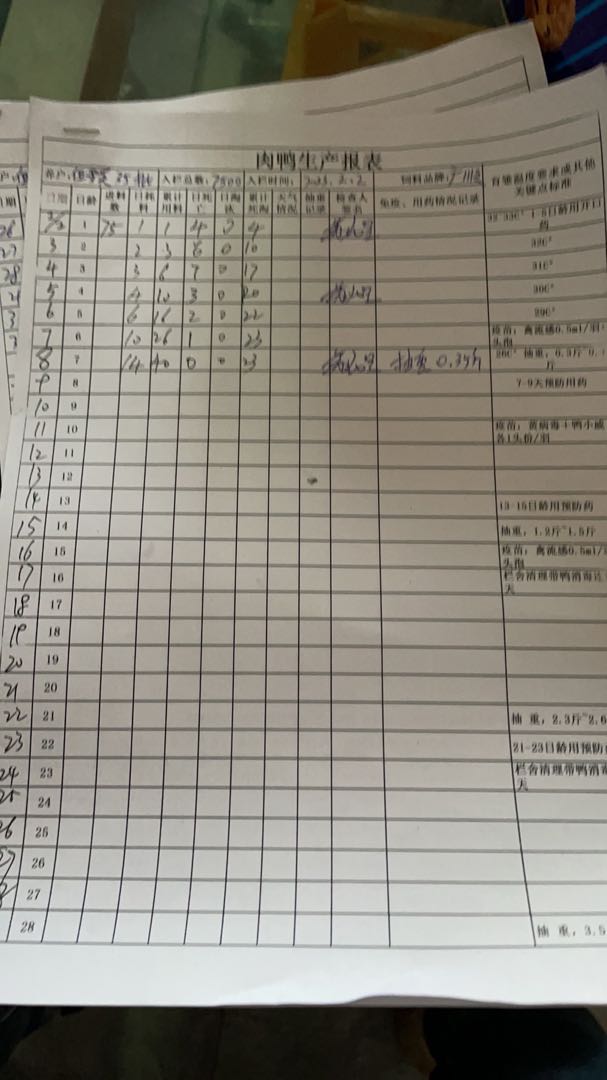 肉鸭生产报表
养户: 入栏总数:7500 入栏时间: 2023.2.2 饲料品牌: 有雏温度要求或其他关键点标准
日期 日龄 进料数 日耗料 累计用料 日死亡 日淘汰 累计死淘 天气情况 抽重记录 检查人签名 免疫、用药情况记录
2/2 1 75 1 1 4 0 4 1-5日龄用开口药
3 2 2 3 6 0 10 32C°
4 3 3 6 7 0 17 31C°
5 4 4 10 3 0 20 30C°
6 5 6 16 2 0 22 29C°
7 6 10 26 1 0 23 疫苗:禽流感0.5ml/羽
8 7 14 40 0 0 23 抽重 0.35斤 28C° 抽重,0.3斤
9 8 7-9天预防用药
10 9
11 10 疫苗:黄病毒+鸭小戚 各1头份/羽
12 11
13 12
14 13 13-15日龄用预防药
15 14 抽重,1.2斤~1.5斤
16 15 疫苗:禽流感0.5ml/
17 16 栏舍清理带鸭消毒 天
18 17
19 18
20 19
21 20
22 21 抽 重,2.3斤~2.6
23 22 21-23日龄用预防
24 23 栏舍清理带鸭消毒 天
25 24
26 25
27 26
27
28 抽 重,3.5